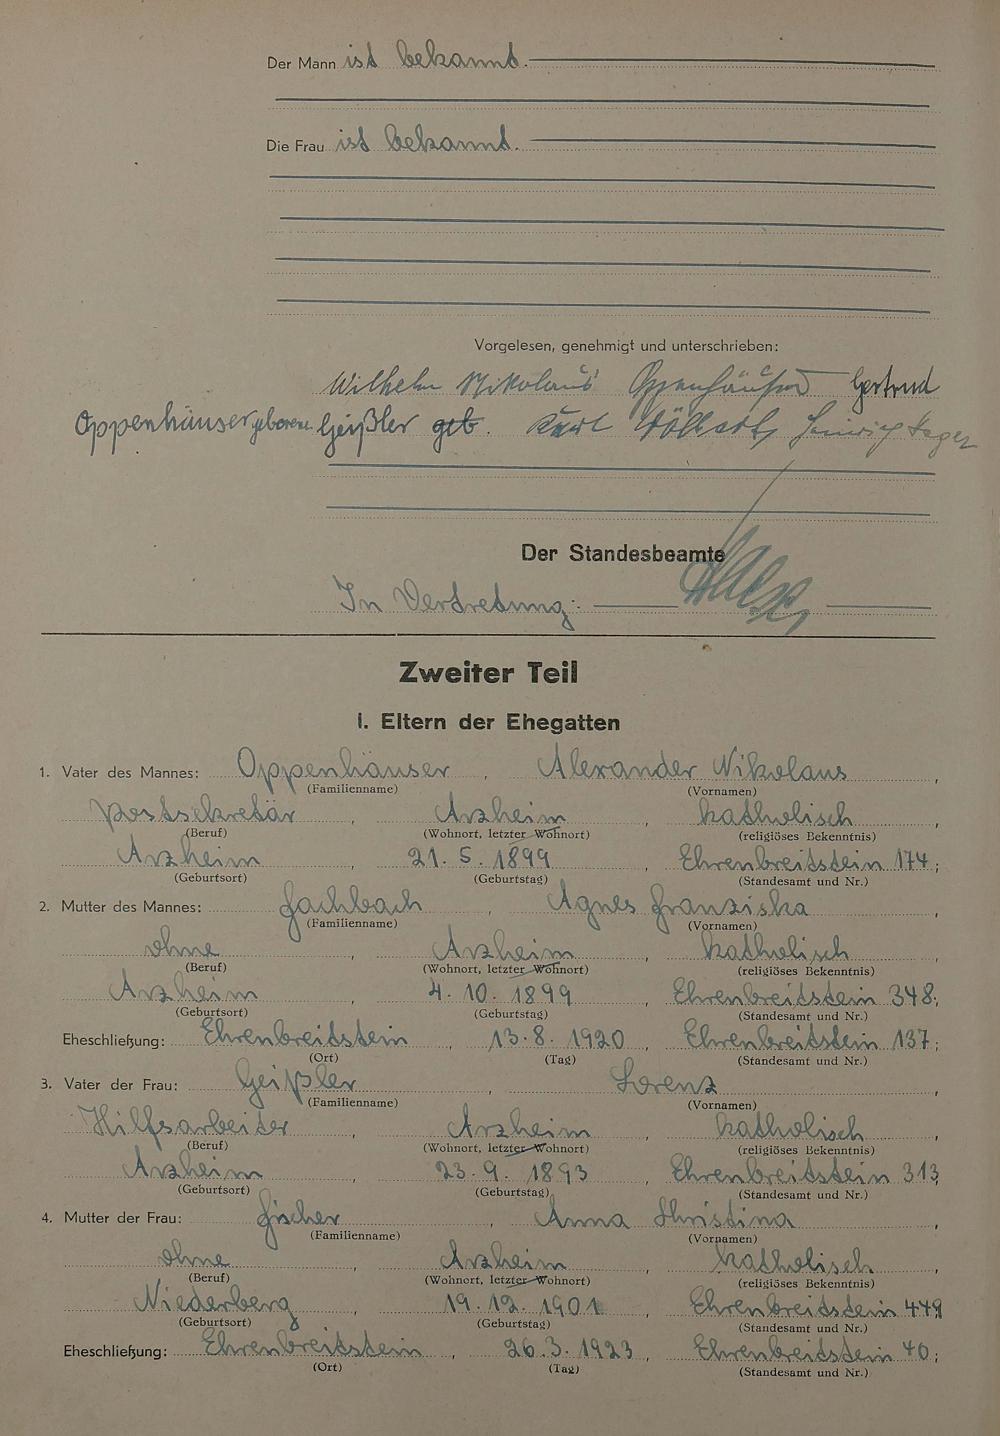 Der Mann ist bekannt.
Die Frau ist bekannt.
Vorgelesen, genehmigt und unterschrieben:
Wilhelm Nikolaus Oppenhäuser Gertrud
Oppenhäuser geborene Geißler geb. Kurt
Der Standesbeamte
In Vertretung:
Zweiter Teil
I. Eltern der Ehegatten
1. Vater des Mannes: Oppenhäuser, Alexander Nikolaus,
(Familienname) (Vornamen)
Postsekretär, Arzheim, katholisch,
(Beruf) (Wohnort, letzter Wohnort) (religiöses Bekenntnis)
Arzheim, 21. 5. 1899, Ehrenbreitstein 174;
(Geburtsort) (Geburtstag) (Standesamt und Nr.)
2. Mutter des Mannes: Fachbach, Agnes Franziska,
(Familienname) (Vornamen)
ohne, Arzheim, katholisch,
(Beruf) (Wohnort, letzter Wohnort) (religiöses Bekenntnis)
Arzheim, 4. 10. 1899, Ehrenbreitstein 348;
(Geburtsort) (Geburtstag) (Standesamt und Nr.)
Eheschließung: Ehrenbreitstein, 13. 8. 1920, Ehrenbreitstein 137;
(Ort) (Tag) (Standesamt und Nr.)
3. Vater der Frau: Geißler, Lorenz,
(Familienname) (Vornamen)
Hilfsarbeiter, Arzheim, katholisch,
(Beruf) (Wohnort, letzter Wohnort) (religiöses Bekenntnis)
Arzheim, 23. 9. 1893, Ehrenbreitstein 313;
(Geburtsort) (Geburtstag) (Standesamt und Nr.)
4. Mutter der Frau: Fischer, Anna Christina,
(Familienname) (Vornamen)
ohne, Arzheim, katholisch,
(Beruf) (Wohnort, letzter Wohnort) (religiöses Bekenntnis)
Niederberg, 19. 12. 1901, Ehrenbreitstein 449
(Geburtsort) (Geburtstag) (Standesamt und Nr.)
Eheschließung: Ehrenbreitstein, 26. 3. 1923, Ehrenbreitstein 40;
(Ort) (Tag) (Standesamt und Nr.)